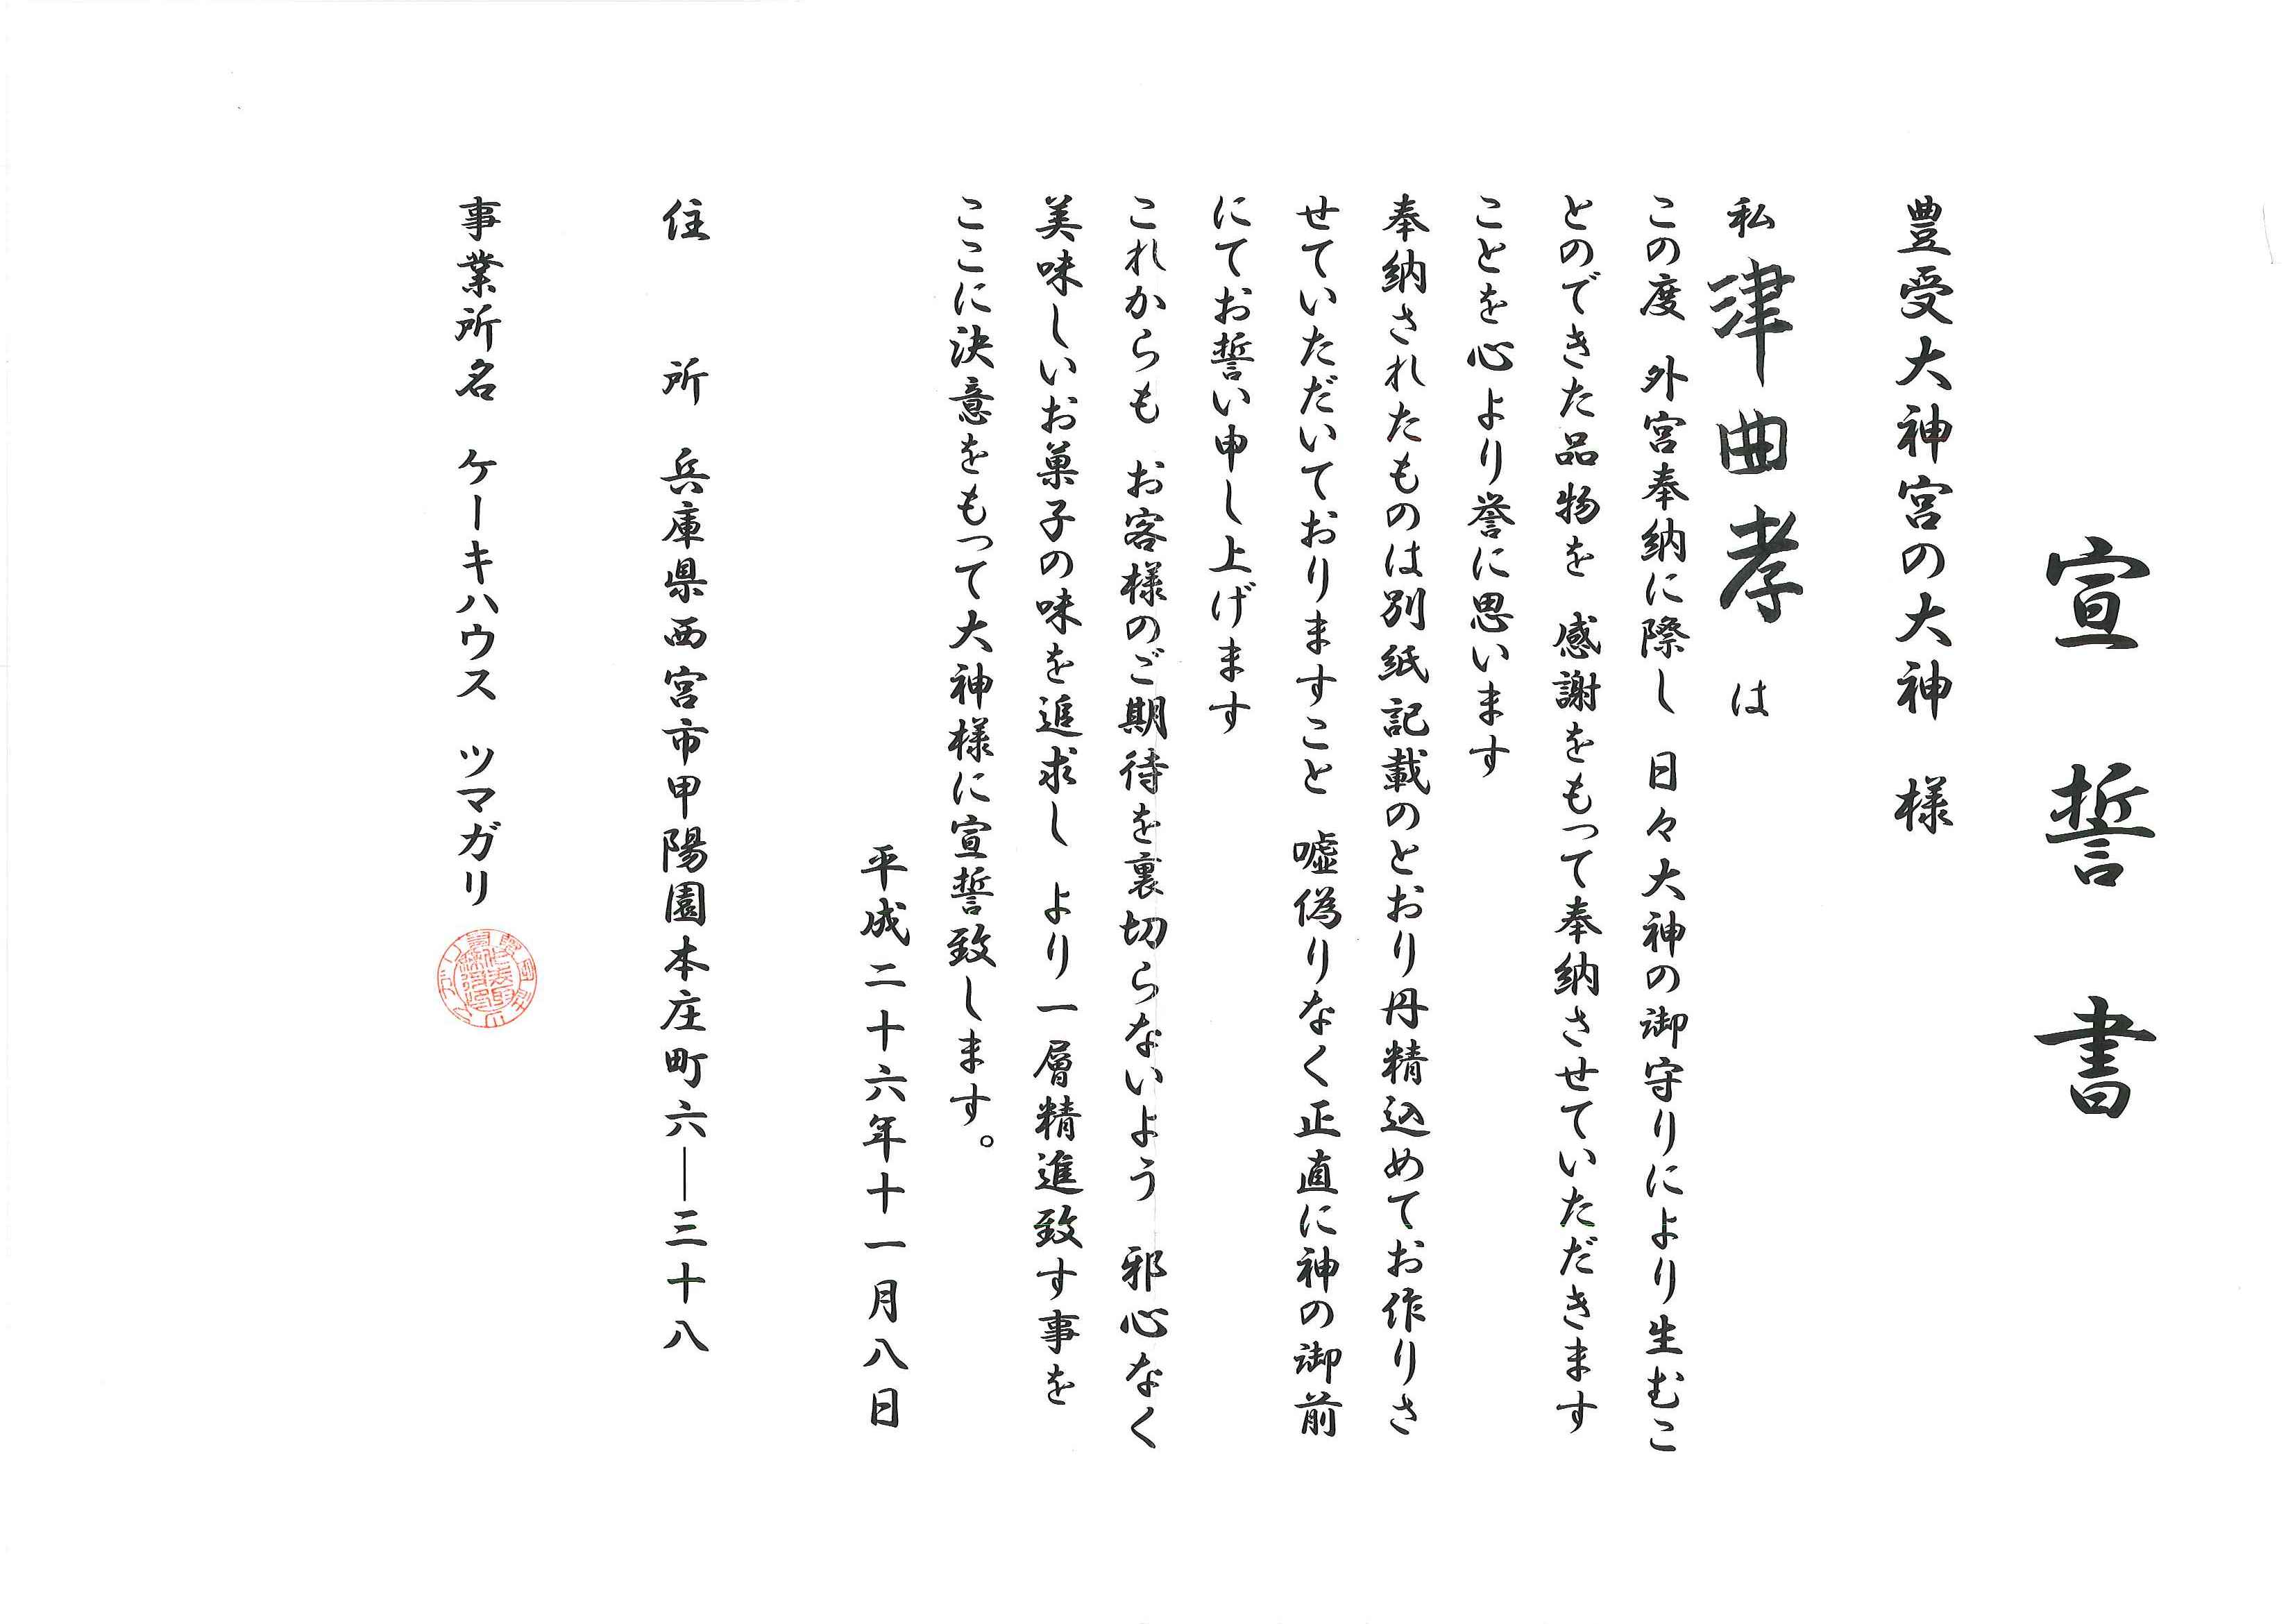 宣誓書
豊受大神宮の大神　様
私　津曲孝　は
この度　外宮奉納に際し　日々大神の御守りにより生むこ
とのできた品物を　感謝をもって奉納させていただきます
ことを心より誉に思います
奉納されたものは別紙記載のとおり丹精込めてお作りさ
せていただいておりますこと　嘘偽りなく正直に神の御前
にてお誓い申し上げます
これからも　お客様のご期待を裏切らないよう　邪心なく
美味しいお菓子の味を追求し　より一層精進致す事を
ここに決意をもって大神様に宣誓致します。
平成二十六年十一月八日
住　所　兵庫県西宮市甲陽園本庄町六―三十八
事業所名　ケーキハウス　ツマガリ